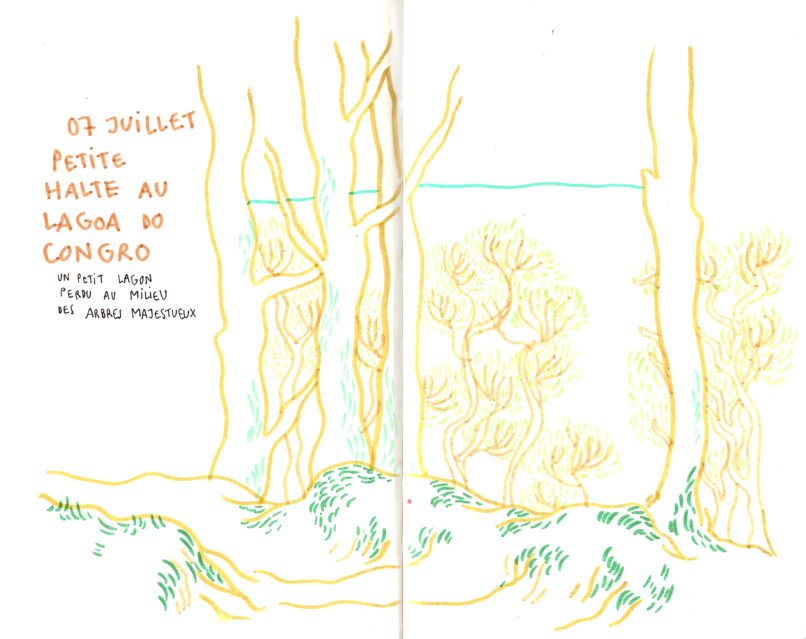 07 JUILLET
PETITE
HALTE AU
LAGOA DO
CONGRO
UN PETIT LAGON
PERDU AU MILIEU
DES ARBRES MAJESTUEUX